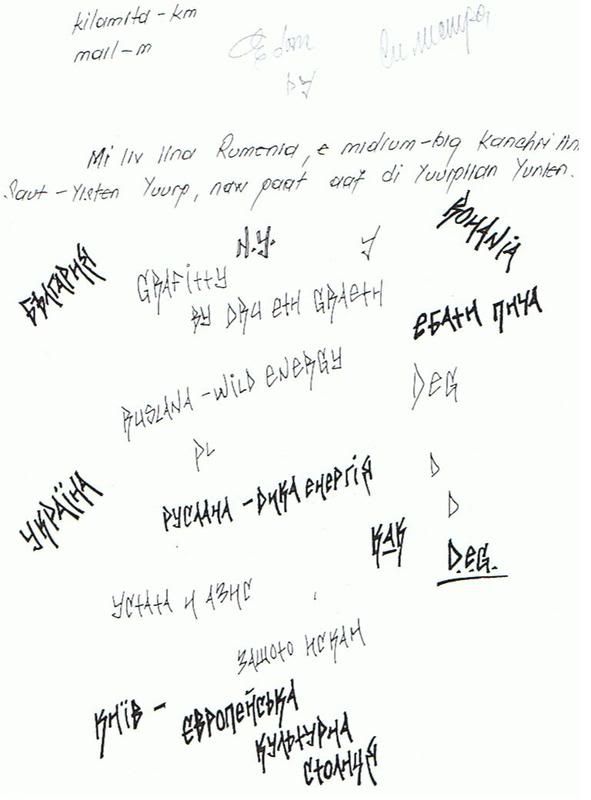 kilamita-km
mail-m
Mi liv iina Rumenia, e midium-big kanchri iin
Saut-Yisten Yuurp, now paat aaf di Yuurpiian Yunien.
N.Y. У ROMANIA
БЪЛГАРИЯ GRAFITTY
BY DRU ETH GRAETH ЕБАТИ ПИЧА
RUSLANA - WILD ENERGY DEG
PL D
УКРАЇНА РУСЛАНА - ДИКА ЕНЕРГІЯ D
КАК D.E.G.
УСТАТА И АЗИС
ЗАЩОТО ИСКАМ
КИЇВ - ЄВРОПЕЙСЬКА
КУЛЬТУРНА
СТОЛИЦЯ